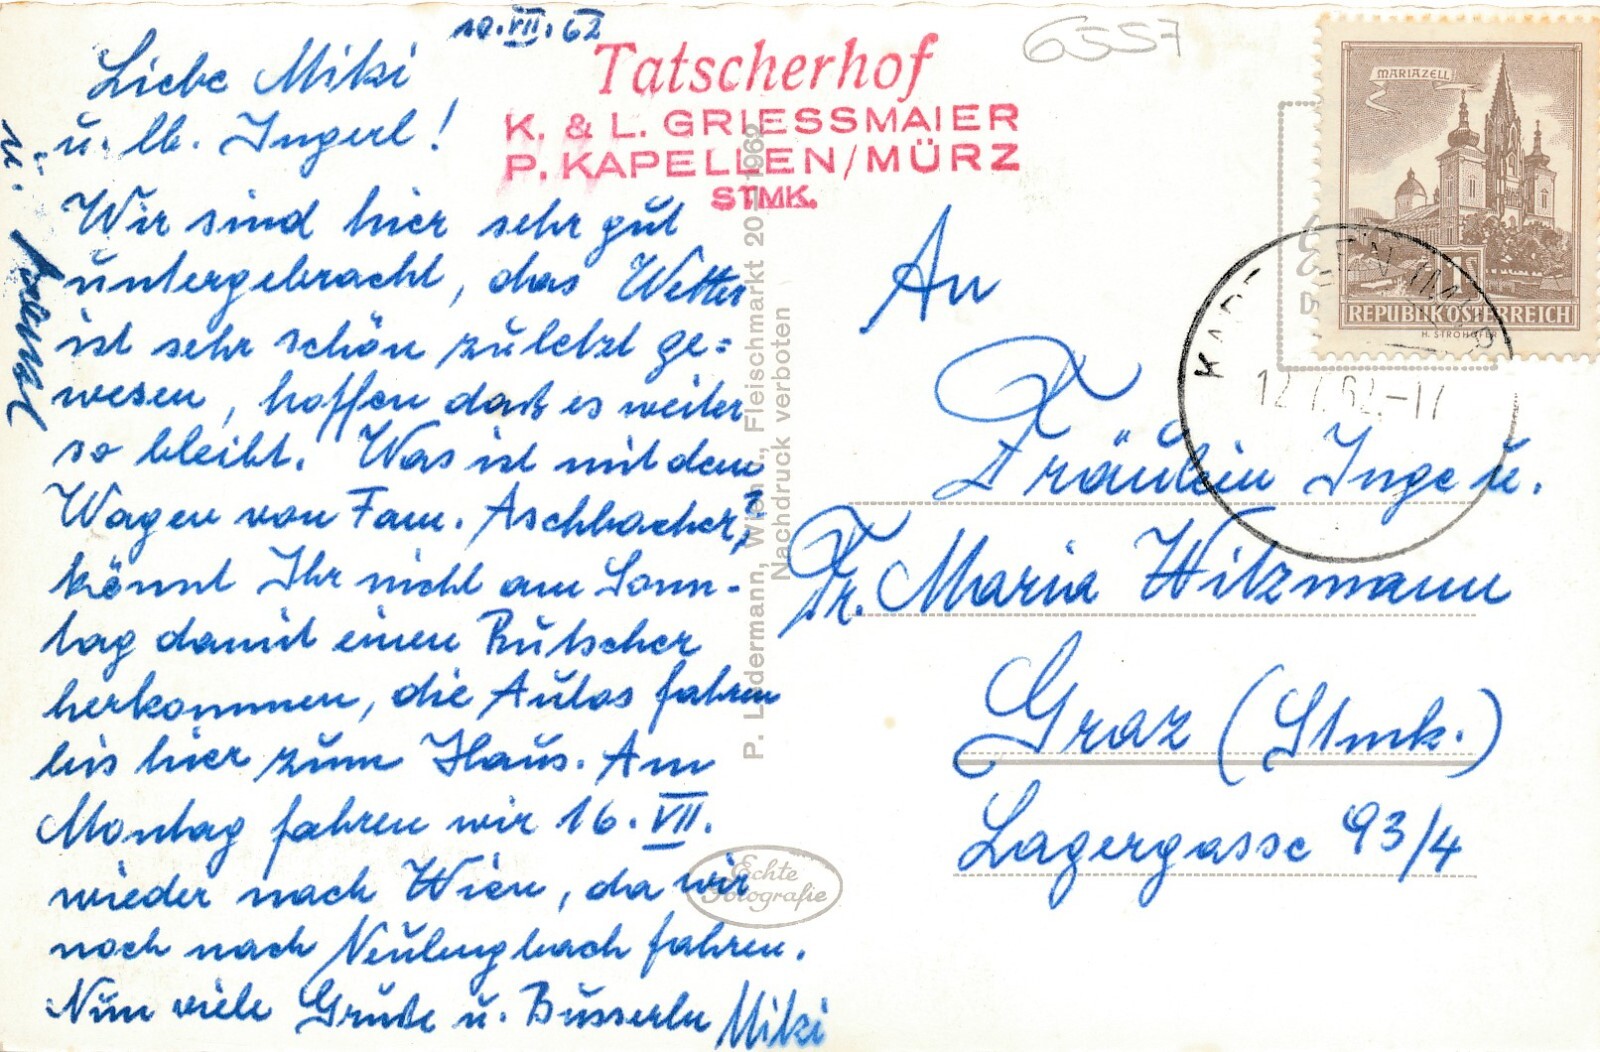 10.VII.62
Liebe Mitzi
u. lb. Ingerl!
Wir sind hier sehr gut
untergebracht, das Wetter
ist sehr schön zuletzt ge=
wesen, hoffen daß es weiter
so bleibt. Was ist mit dem
Wagen von Fam. Aschbacher,?
könnt Ihr nicht am Sonn-
tag damit einen Rutscher
herkommen, die Autos fahren
bis hier zum Haus. Am
Montag fahren wir 16.VII.
wieder nach Wien, da wir
noch nach Neulengbach fahren.
Nun viele Grüße u. Busserln Mitzi
u.
Tatscherhof
K. & L. GRIESSMAIER
P. KAPELLEN/MÜRZ
STMK.
P. Ledermann, Wien I., Fleischmarkt 20 1962
Nachdruck verboten
Echte
Fotografie
6557
MARIAZELL
1S
REPUBLIK ÖSTERREICH
H. STROHOFER
12.7.62.-17
An
Fräulein Inge u.
Fr. Maria Witzmann
Graz (Stmk.)
Lagergasse 93/4